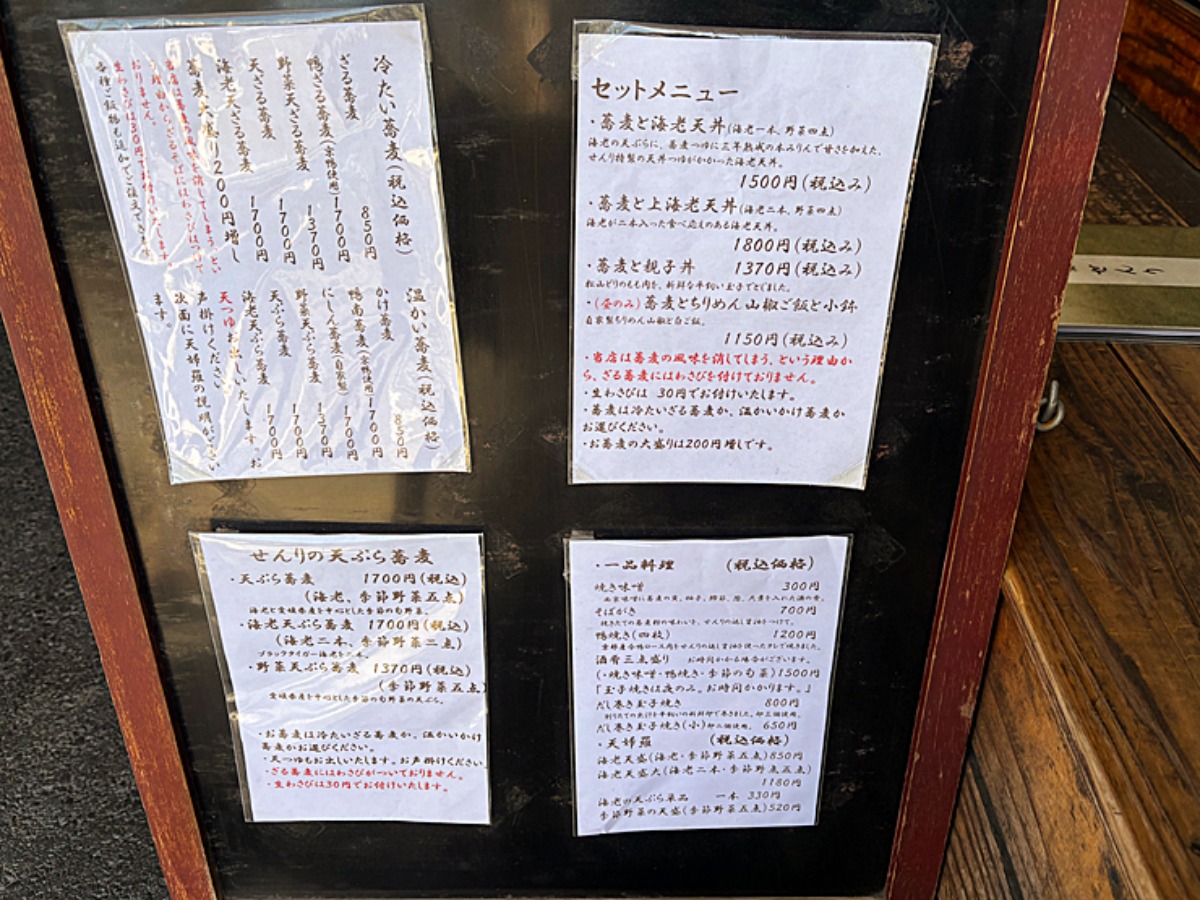 冷たい蕎麦(税込価格)
ざる蕎麦 850円
鴨ざる蕎麦(合鴨使用)1700円
野菜天ざる蕎麦 1370円
天ざる蕎麦 1700円
海老天ざる蕎麦 1700円
蕎麦大盛り200円増し
当店は蕎麦の風味を消してしまう、とい
う理由から、ざるそばにはわさびはつけて
おりません。
生わさびは30円でお付けいたします。
各種ご飯物も追加でご注文できます。
温かい蕎麦(税込価格)
かけ蕎麦 850円
鴨南蕎麦(合鴨使用)1700円
にしん蕎麦(自家製) 1700円
野菜天ぷら蕎麦 1370円
天ぷら蕎麦 1700円
海老天ぷら蕎麦 1700円
天つゆお出しいたします。お
声掛けください
次面に天婦羅の説明がござい
ます。
セットメニュー
・蕎麦と海老天丼(海老一本、野菜四点)
海老の天ぷらに、蕎麦つゆに三年熟成の本みりんで甘さを加えた、
せんり特製の天丼つゆがかかった海老天丼。
1500円(税込み)
・蕎麦と上海老天丼(海老二本、野菜四点)
海老が二本入った食べ応えのある海老天丼。
1800円(税込み)
・蕎麦と親子丼 1370円(税込み)
松山どりのもも肉を、新鮮な平飼い玉子でとじました。
・(昼のみ)蕎麦とちりめん山椒ご飯と小鉢
自家製ちりめん山椒と白ご飯。
1150円(税込み)
・当店は蕎麦の風味を消してしまう、という理由か
ら、ざる蕎麦にはわさびを付けておりません。
・生わさびは 30円でお付けいたします。
・蕎麦は冷たいざる蕎麦か、温かいかけ蕎麦か
お選びください。
・お蕎麦の大盛りは200円増しです。
せんり
せんりの天ぷら蕎麦
・天ぷら蕎麦 1700円(税込)
(海老、季節野菜五点)
海老と愛媛県産を中心とした季節の旬野菜。
・海老天ぷら蕎麦 1700円(税込)
(海老二本、季節野菜二点)
ブラックタイガー海老を二本。
・野菜天ぷら蕎麦 1370円(税込)
(季節野菜五点)
愛媛県産を中心とした季節の旬野菜の天ぷら。
・お蕎麦は冷たいざる蕎麦か、温かいかけ
蕎麦かお選びください。
・天つゆもお出しいたします。お声掛けください。
・ざる蕎麦にはわさびがついておりません。
・生わさびは30円でお付けいたします。
・一品料理 (税込価格)
焼き味噌 300円
そばがき 700円
鴨焼き(四枚) 1200円
酒肴三点盛り お時間かかる場合がございます。
(・焼き味噌・鴨焼き・季節の旬菜)1500円
「玉子焼きは夜のみ。お時間かかります。」
だし巻き玉子焼き 800円
だし巻き玉子焼き(小)卵二個使用。 650円
・天婦羅 (税込価格)
海老天盛(海老・季節野菜五点)850円
海老天盛大(海老二本・季節野菜五点)
1180円
海老の天ぷら単品 一本 330円
季節野菜の天盛(季節野菜五点)520円